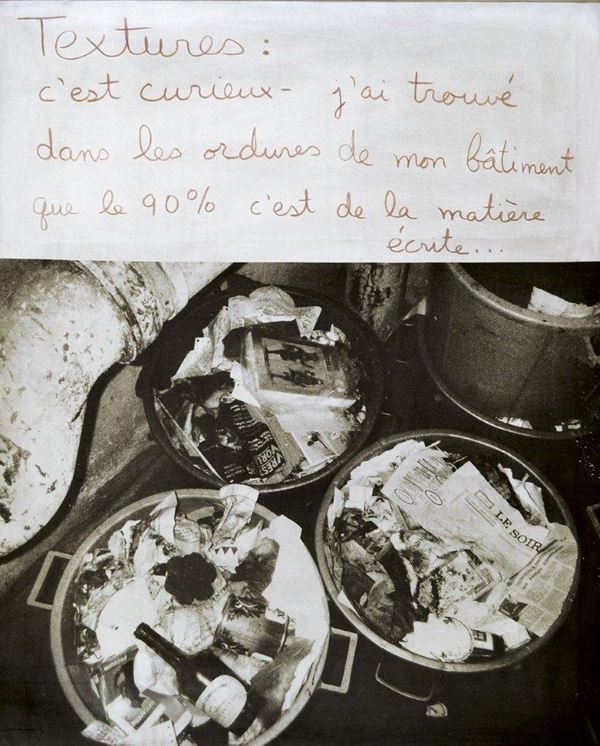 Textures :
c'est curieux - j'ai trouvé
dans les ordures de mon bâtiment
que le 90% c'est de la matière
écrite...
LE SOIR